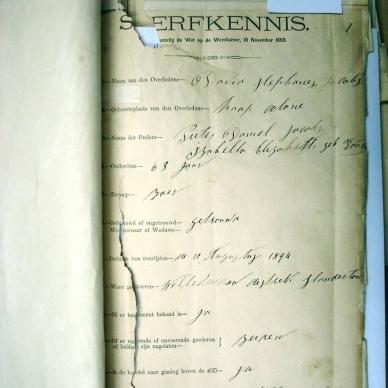 S ERFKENNIS.
de Wet op de Weeskamer, 10 November 1869.
1
Naam van den Overledene— David Stephanus Jacobs
Geboorteplaats van den Overledene— Kaap Colonie
Naam der Ouders— Pieter Daniel Jacobs
Isabella Elizabeth geb
Ouderdom— 63 Jaar
Beroep— Boer
Getrouwd of ongetrouwd— getrouwd
Weduwnaar of Weduwe
Datum van overlijden— de 10 Augustus 1894
Waar gestorven— distrikt Standerton
Of er testament bekend is— Ja
Of er roerende of onroerende goederen
of beiden zijn nagelaten— } Beiden
Is de boedel naar gissing boven de Ja